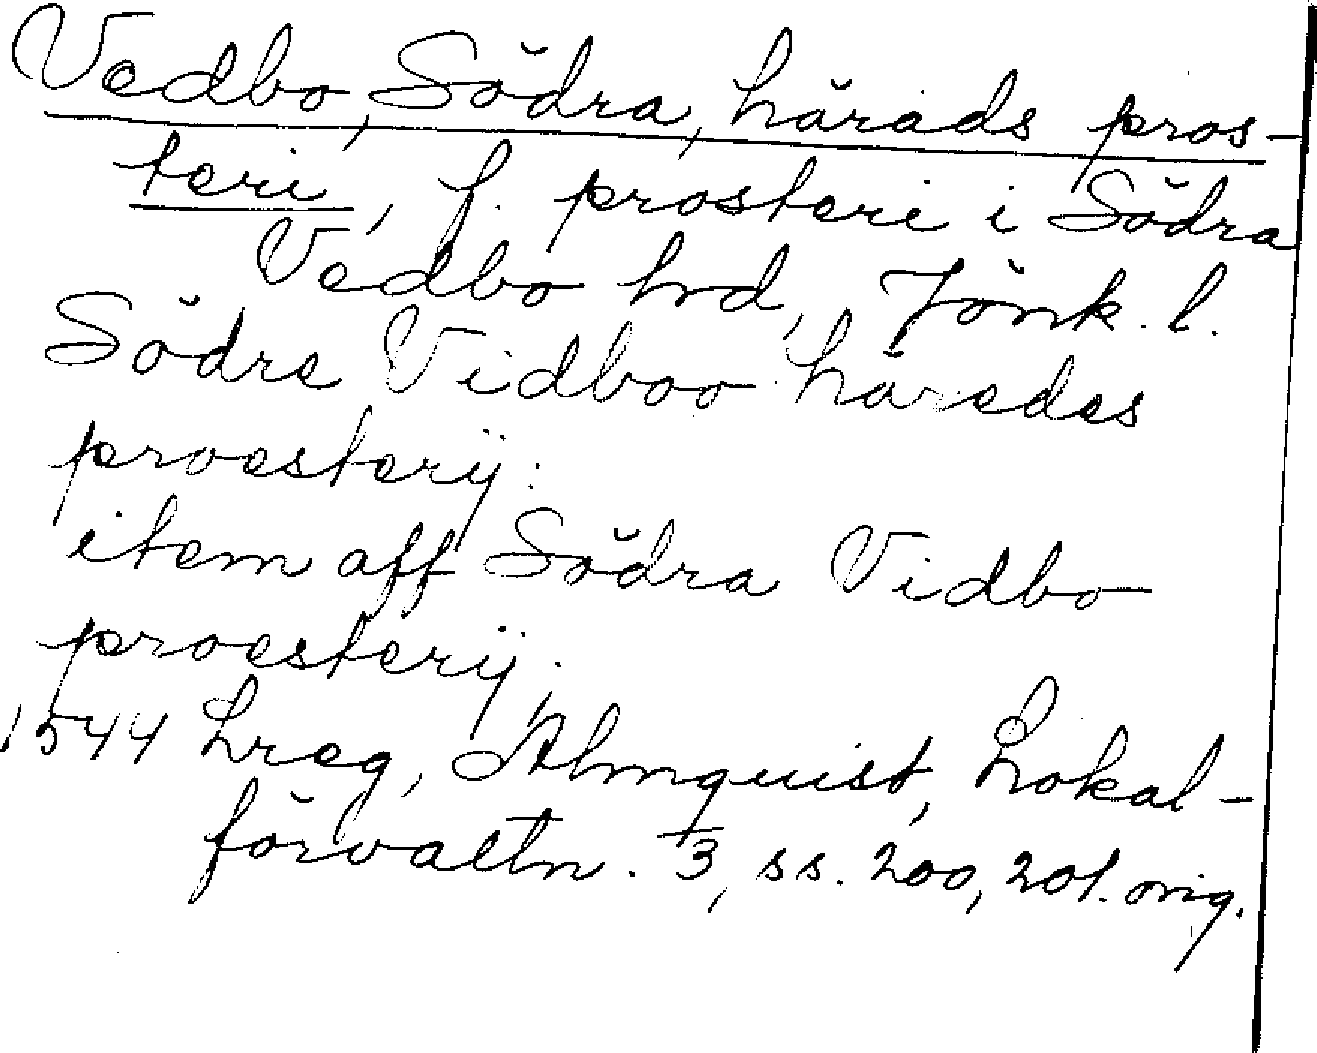 Vedbo, Södra, härads pros-
teri, f. prosteri i Södra
Vedbo hrd, Jönk. l.
Södre Vidboo häredes
proesterij.
item aff Södra Vidbo
proesterij.
1544 Lreg, Almquist, Lokal-
förvaltn. 3, ss. 200, 201. orig.